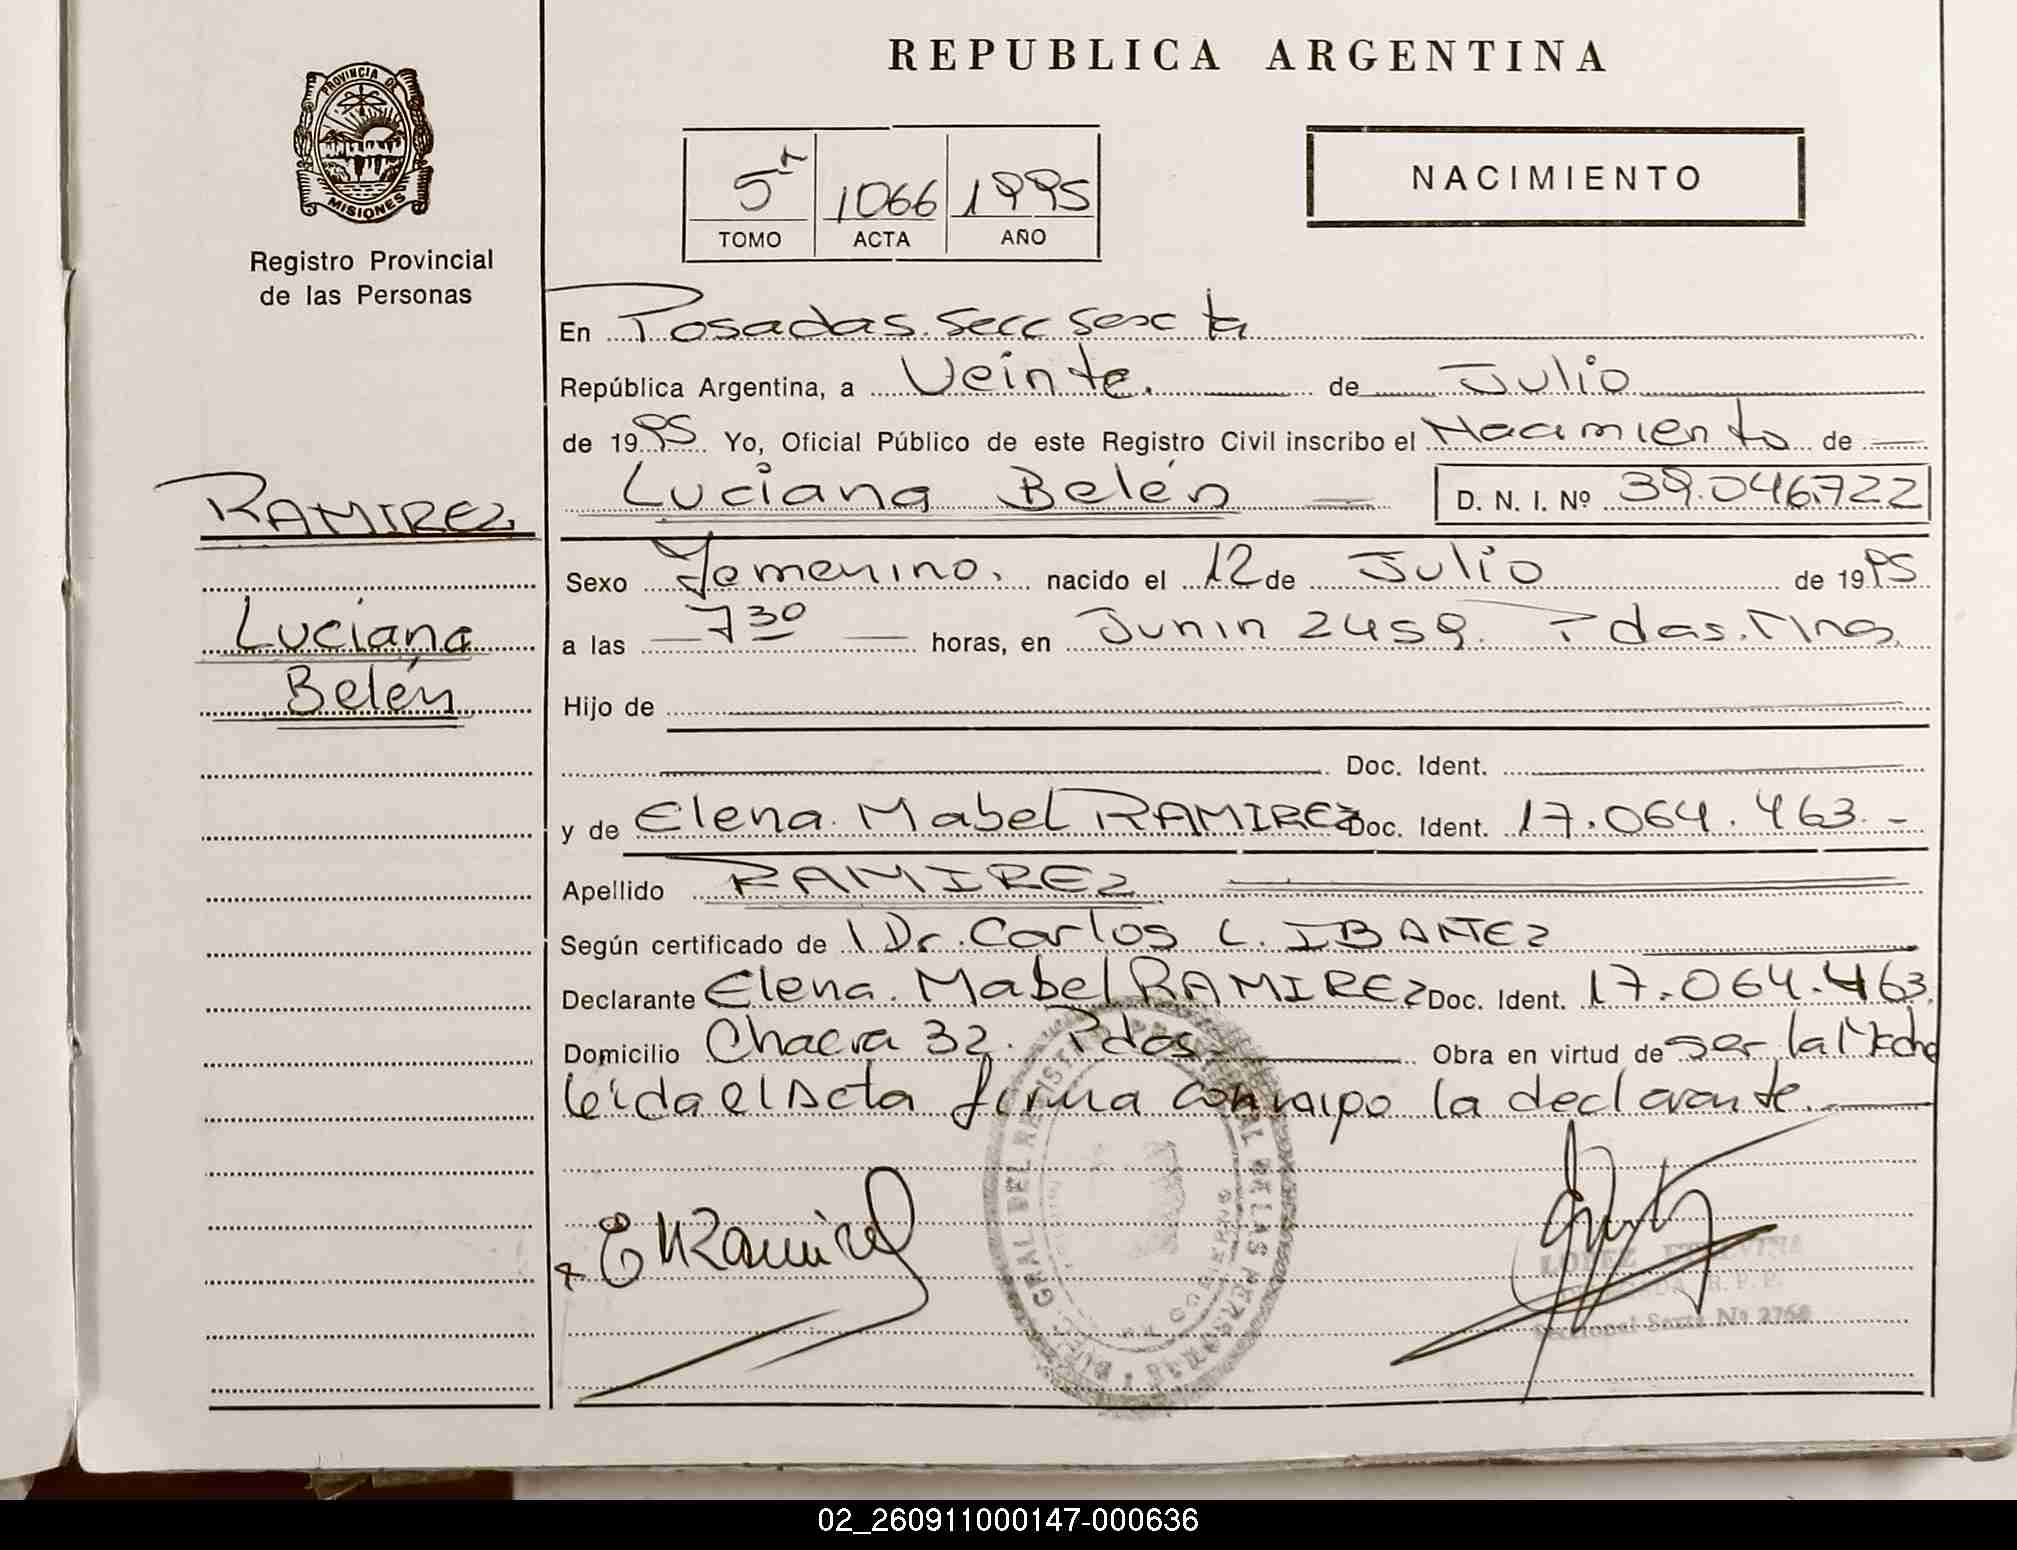 REPUBLICA ARGENTINA
PROVINCIA DE
MISIONES
Registro Provincial
de las Personas
5t 1066 1995
TOMO ACTA AÑO
NACIMIENTO
En Posadas. Secc Sexta
República Argentina, a Veinte. de Julio
de 1995. Yo, Oficial Público de este Registro Civil inscribo el Nacimiento de
Luciana Belén D. N. I. Nº 39.046.722
RAMIREZ
Sexo Femenino. nacido el 12 de Julio de 1995
Luciana
a las 7 30 horas, en Junin 2459. Pdas. Mnes.
Belén
Hijo de
Doc. Ident.
y de Elena Mabel RAMIREZ Doc. Ident. 17.064.463.-
Apellido RAMIREZ
Según certificado de Dr. Carlos L. IBAÑEZ
Declarante Elena Mabel RAMIREZ Doc. Ident. 17.064.463.
Domicilio Chacra 32. Pdas. Obra en virtud de ser la Madre
leida el Acta firma conmigo la declarante.
E M Ramirez
GRAL DEL REGIST DE LAS PERSONAS
GOBIERNO
LOPEZ
R. P. P.
Seccional Sexta Nº 2768
02_260911000147-000636